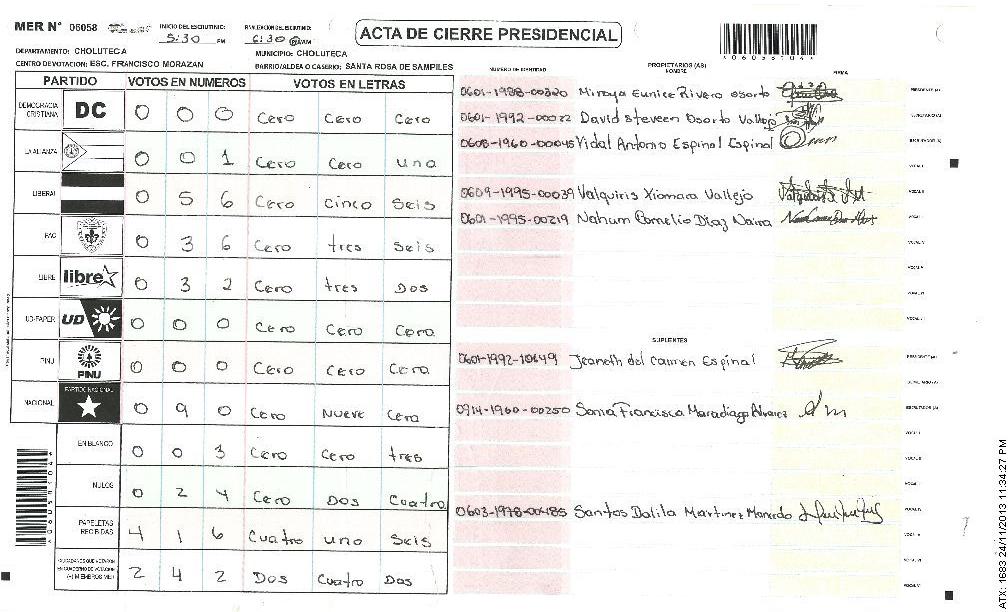 MER N° 06058 INICIO DEL ESCRUTINIO: 5:30 PM FINALIZACION DEL ESCRUTINIO: 6:30 PM/AM
ACTA DE CIERRE PRESIDENCIAL
DEPARTAMENTO: CHOLUTECA MUNICIPIO: CHOLUTECA
CENTRO DE VOTACION: ESC. FRANCISCO MORAZAN BARRIO/ALDEA O CASERIO: SANTA ROSA DE SAMPILES
PARTIDO VOTOS EN NUMEROS VOTOS EN LETRAS
NUMERO DE IDENTIDAD PROPIETARIOS (AS) NOMBRE FIRMA
DEMOCRACIA CRISTIANA DC 0 0 0 Cero Cero Cero
LA ALIANZA 0 0 1 Cero Cero uno
LIBERAL 0 5 6 Cero cinco Seis
PAC 0 3 6 Cero tres Seis
LIBRE libre 0 3 2 Cero tres Dos
UD-FAPER UD 0 0 0 Cero Cero Cero
PINU PINU 0 0 0 Cero Cero Cero
NACIONAL PARTIDO NACIONAL 0 9 0 Cero Nueve Cero
EN BLANCO 0 0 3 Cero Cero tres
NULOS 0 2 4 Cero Dos Cuatro
PAPELETAS RECIBIDAS 4 1 6 Cuatro uno Seis
CIUDADANOS QUE VOTARON EN CUADERNO DE VOTACION (+) MIEMBROS MER 2 4 2 Dos Cuatro Dos
0601-1988-00320 Mireya Eunice Rivero Osorto PRESIDENTE (A)
0601-1992-00022 David Steveen Osorto Vallejo SECRETARIO (A)
0608-1960-00045 Vidal Antonio Espinal Espinal ESCRUTADOR (A)
VOCAL I
0609-1995-00039 Valquiris Xiomara Vallejo VOCAL II
0601-1995-00219 Nahum Cornelio Diaz
SUPLENTES
0601-1992-10649 Jeaneth del Carmen Espinal PRESIDENTE (A)
SECRETARIO (A)
0914-1960-00250 Sonia Francisca Maradiaga Alvarez ESCRUTADOR (A)
VOCAL I
0603-1978-00485 Santos Dalila Martinez
ATX: 1683 24/11/2013 11:34:27 PM